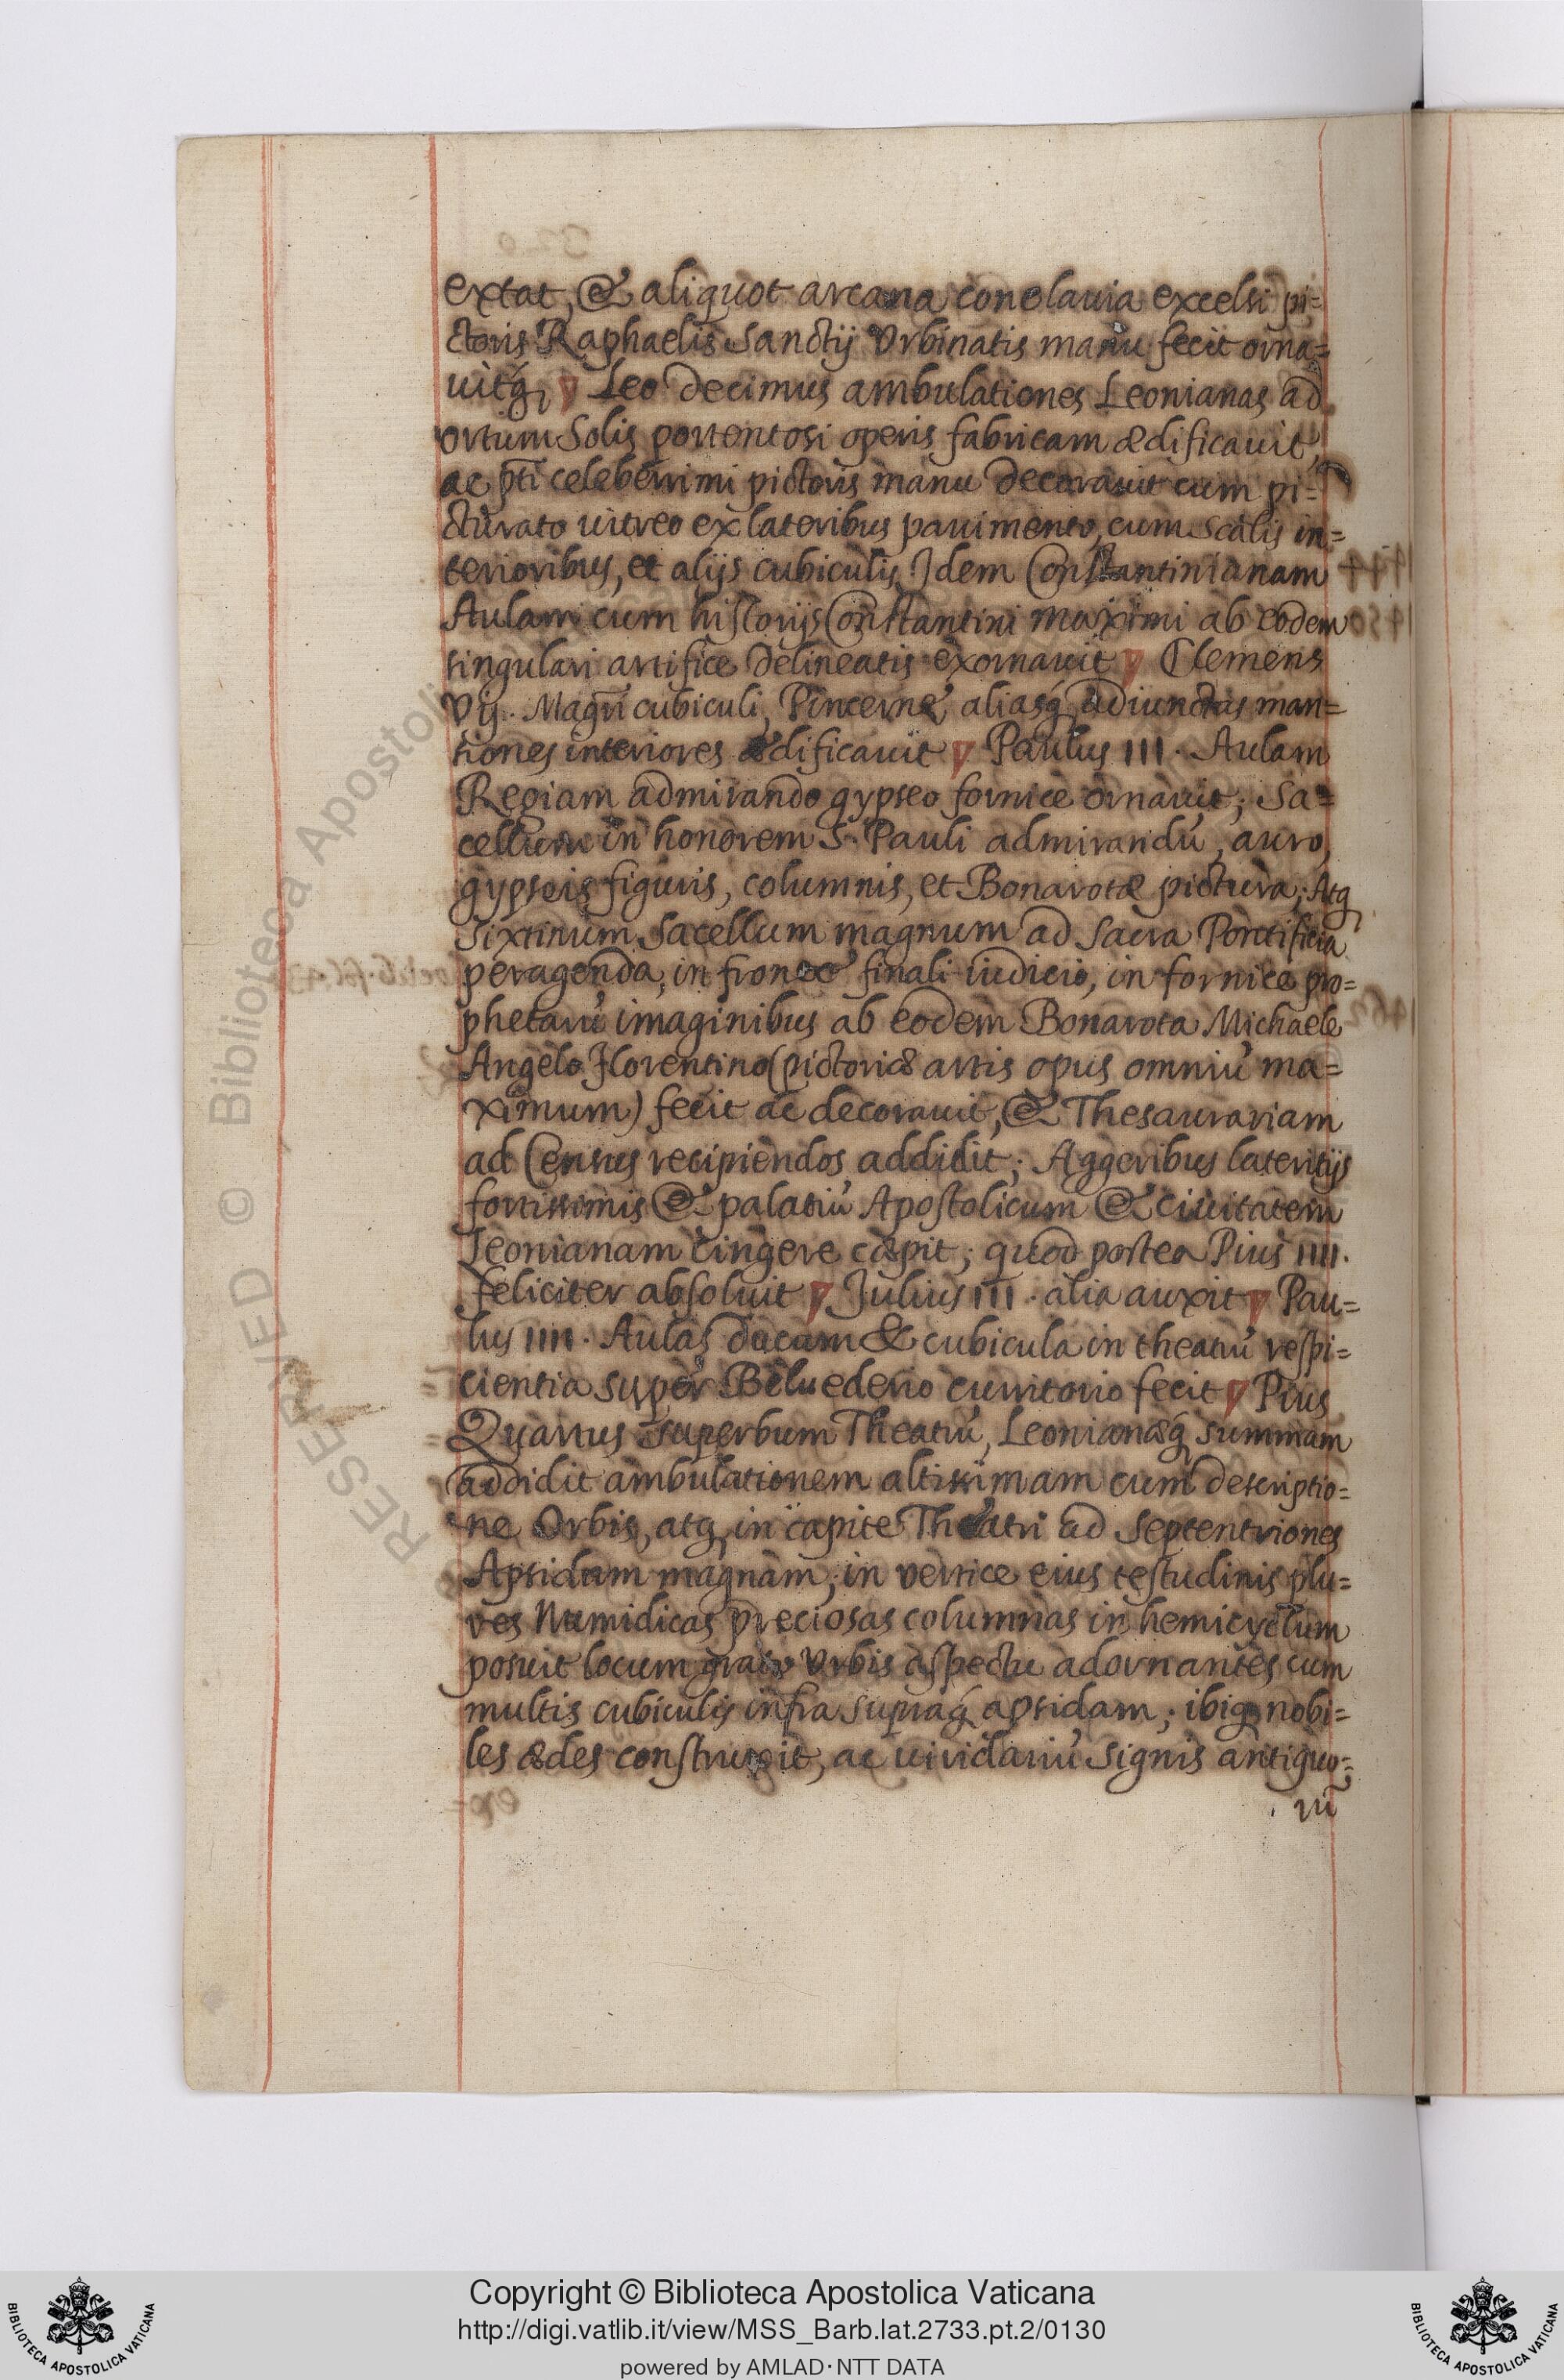 extat, & aliquot arcana conclauia excelsi pi=
ctoris Raphaelis Sanctij Vrbinatis manu fecit orna=
uitq₃ Leo Decimus ambulationes Leonianas ad
ortum Solis portentosi operis fabricam ædificauit,
ac p̄ti celeberrimi pictoris manu decorauit cum pi=
cturato uitreo ex lateribus pauimento, cum scalis in=
terioribus, et alijs cubiculis Idem Constantinianam
Aulam cum historijs Constantini maximi ab eodem
singulari artifice delineatis exornauit Clemens
Vij. Magni cubiculi, Pincernę aliasq₃ adiunctas man=
siones interiores ædificauit Paulus III. Aulam
Regiam admirando gypseo fornice ornauit; Sa=
cellum in honorem S. Pauli admirandū, auro,
gypseis figuris, columnis, et Bonarotæ pictura; Atq₃
Sixtinum Sacellum magnum ad Sacra Pontificia
peragenda, in fronte finali iudicio, in fornice pro=
phetarū imaginibus ab eodem Bonarota Michaele
Angelo Florentino (pictoriæ artis opus omniū ma=
ximum) fecit ac decorauit, & Thesaurariam
ad Census recipiendos addidit; Aggeribus lateritijs
fortissimis & palatiū Apostolicum & ciuitatem
Leonianam cingere cæpit; quod postea Pius IIII.
feliciter absoluit Julius III. alia auxit Pau=
lus IIII. Aulas ducam & cubicula in theatrū respi=
cientia super Beluederio curritorio fecit Pius
Quartus superbum Theatrū, Leonianæq₃ summam
addidit ambulationem altissimam cum descriptio=
ne Orbis, atq₃ in capite Theatri ad Septentriones
Apsidam magnam, in vertice eius testudinis plu=
res Numidicas preciosas columnas in hemicyclum
posuit locum grato Vrbis aspectu adornantes cum
multis cubiculis infra supraq₃ apsidam; ibiq₃ nobi=
les ædes construxit, ac uiridariū signis antiquo=
rū
Copyright © Biblioteca Apostolica Vaticana
http://digi.vatlib.it/view/MSS_Barb.lat.2733.pt.2/0130
powered by AMLAD·NTT DATA
BIBLIOTECA APOSTOLICA VATICANA
BIBLIOTECA APOSTOLICA VATICANA
RESERVED © Biblioteca Apostoli